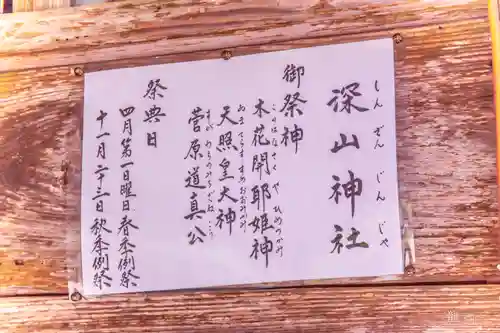 深山神社
しんざんじんじゃ
御祭神
木花開耶姫神
このはなさくやひめのかみ
天照皇大神
あまてらすすめおおみかみ
菅原道真公
すがわらのみちざねこう
祭典日
四月第一日曜日 春季例祭
十一月二十三日 秋季例祭